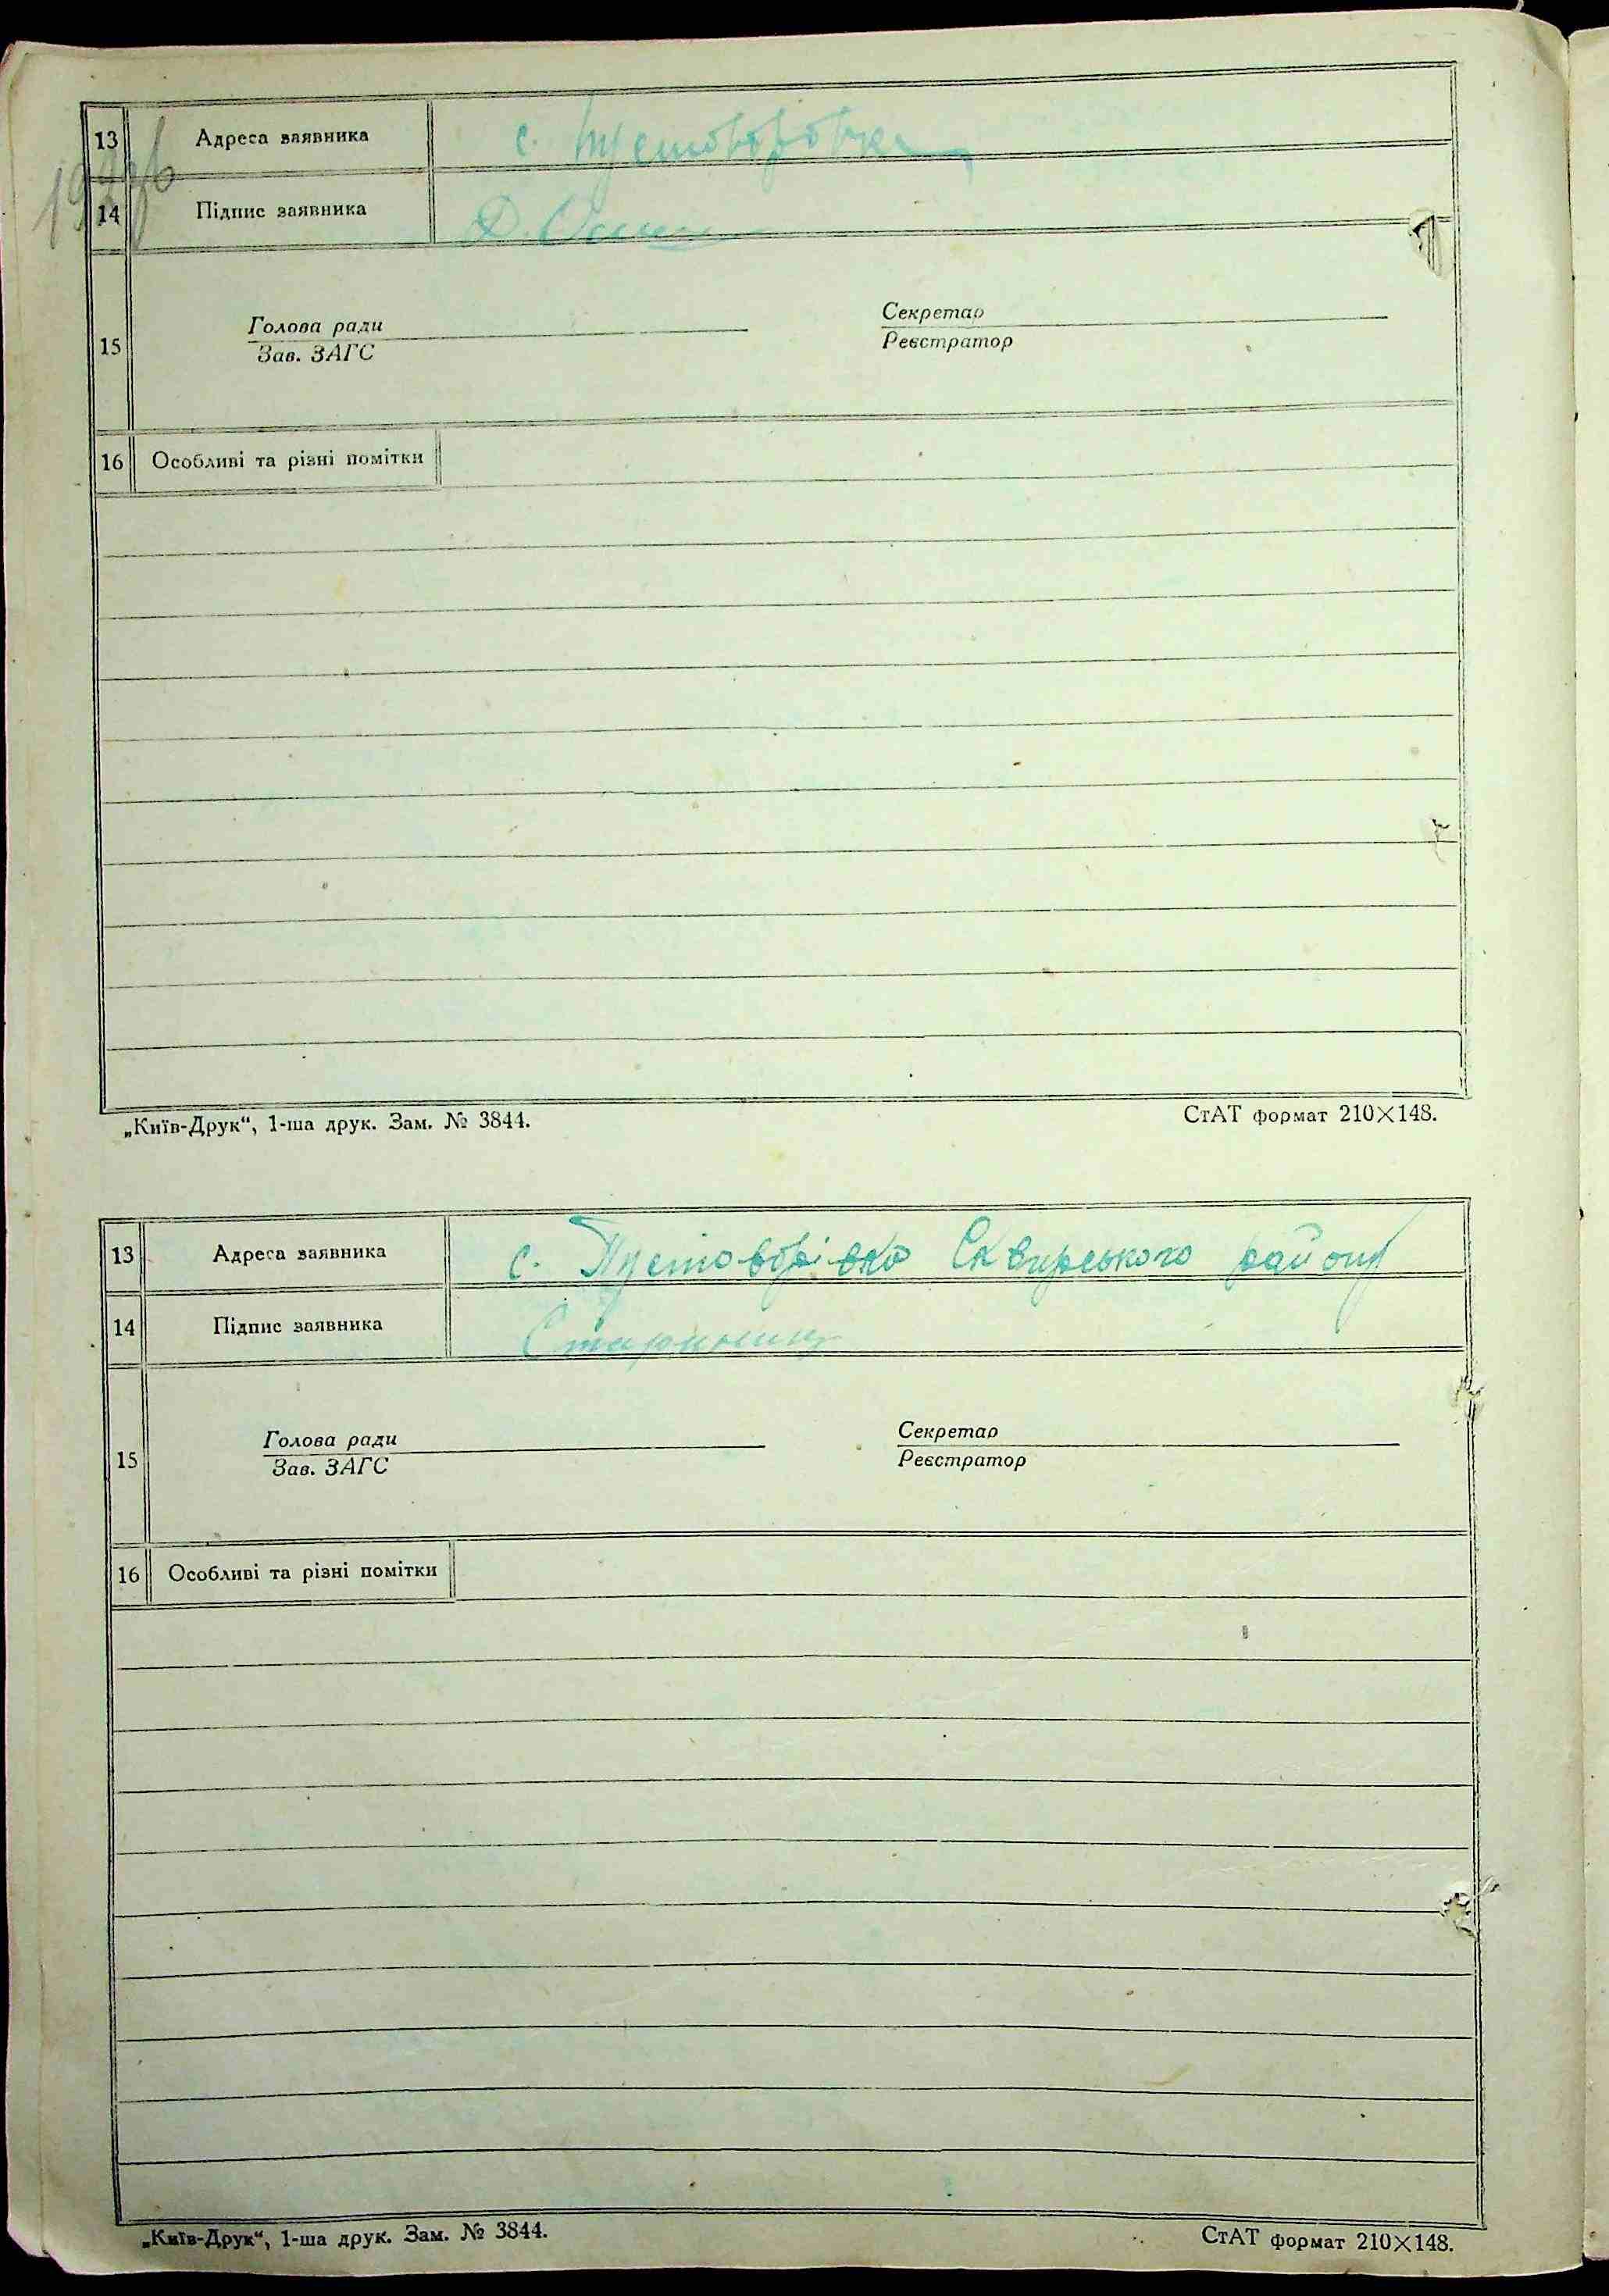 13 Адреса заявника с. Пустоворовка
14 Підпис заявника Д.
15 Голова ради Секретар
Зав. ЗАГС Реєстратор
16 Особливі та різні помітки
„Київ-Друк“, 1-ша друк. Зам. № 3844. СтАТ формат 210×148.
13 Адреса заявника с. Пустоварівка Сквирського району
14 Підпис заявника
15 Голова ради Секретар
Зав. ЗАГС Реєстратор
16 Особливі та різні помітки
„Київ-Друк“, 1-ша друк. Зам. № 3844. СтАТ формат 210×148.